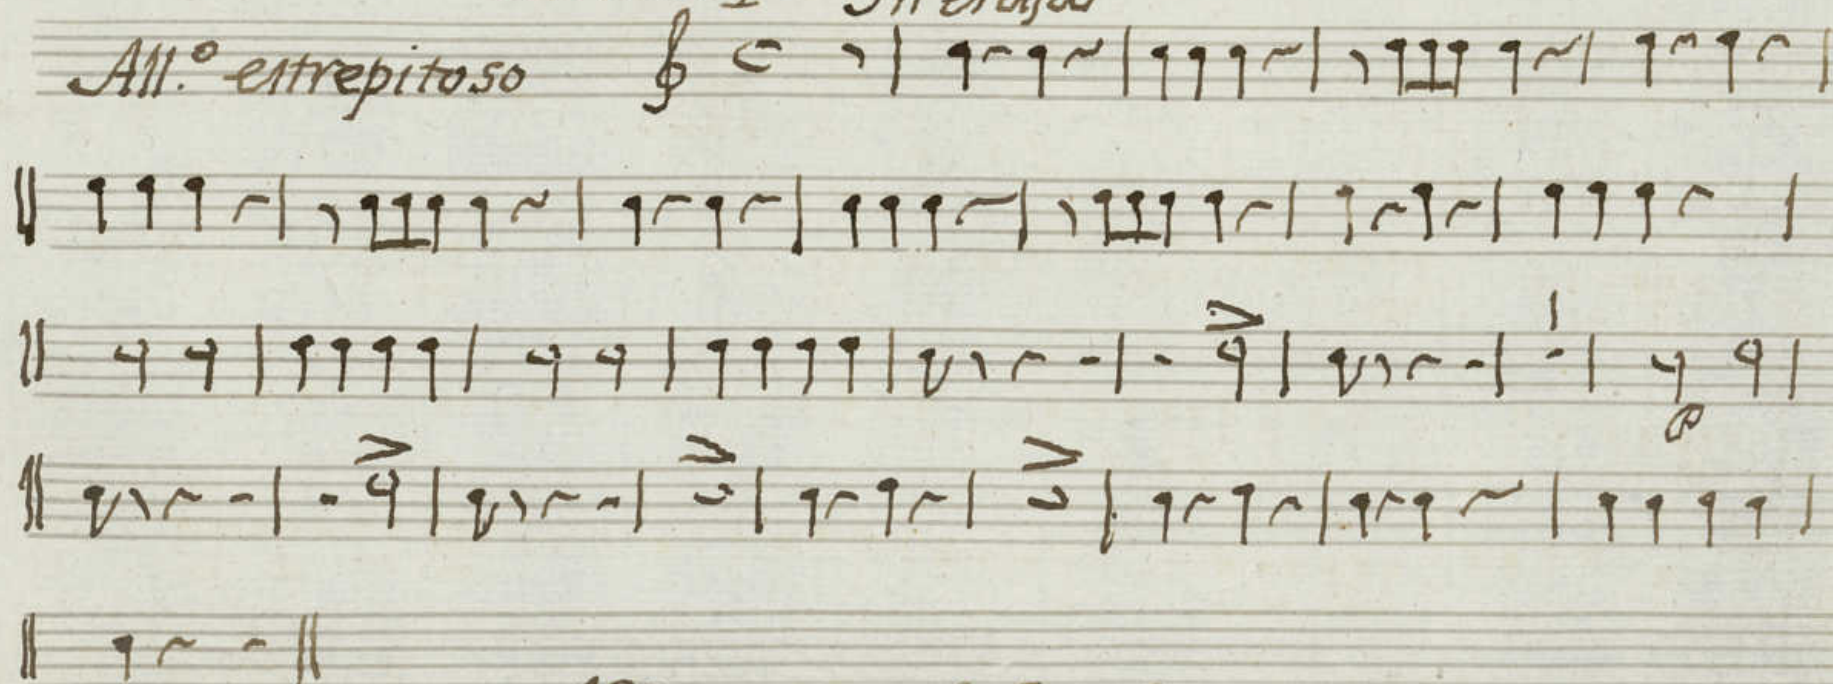 All.º estrepitoso